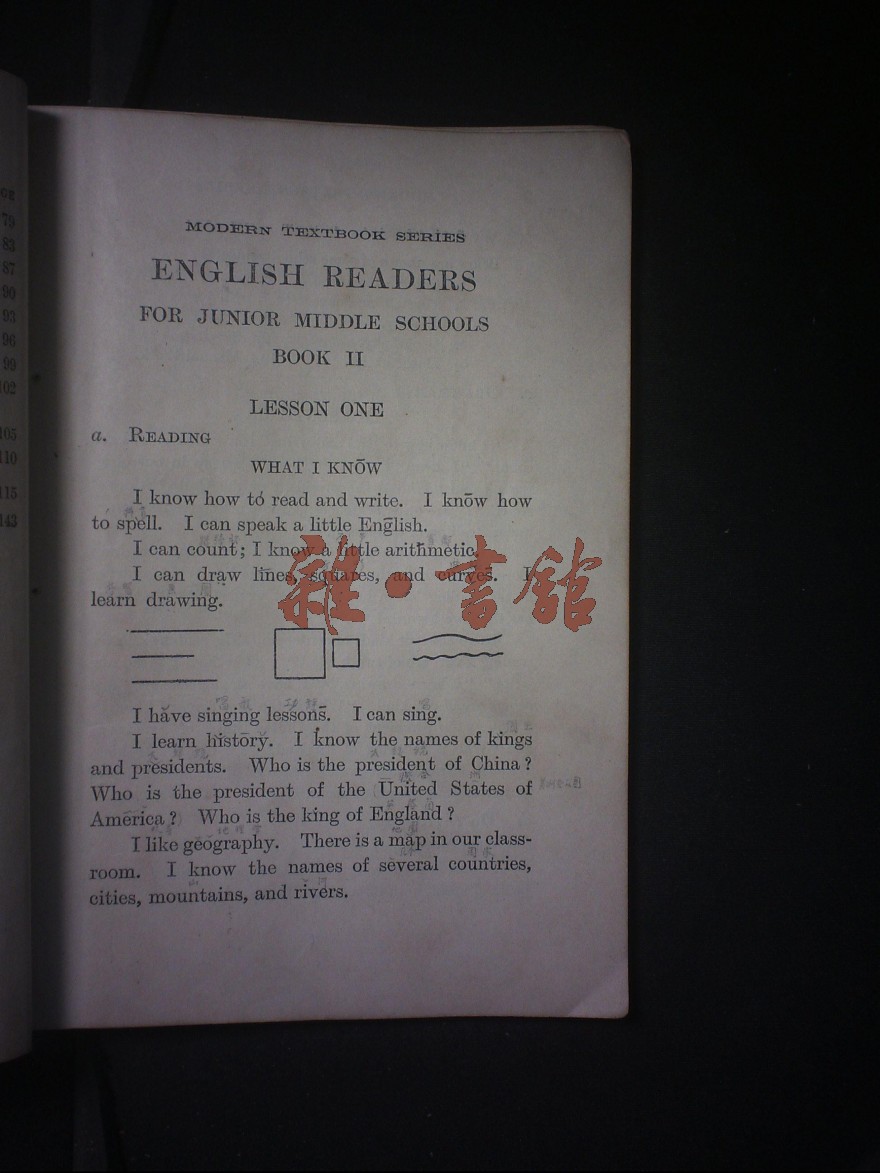 GE
79
83
87
90
93
96
99
102
105
110
115
143
MODERN TEXTBOOK SERIES
ENGLISH READERS
FOR JUNIOR MIDDLE SCHOOLS
BOOK II
LESSON ONE
a. READING
WHAT I KNŌW
I know how tó read and write. I knōw how
to spĕll. I can speak a little Enḡlish.
I can count; I know a little arithmetic.
I can draw līnes, squares, and curves. I
learn drawing.
雜·書館
I hăve singing lessons̄. I can sing.
I learn hĭstŏry̆. I know the names of kings
and prĕsidents. Who is the president of China?
Who is the president of the Ūnited States of
Amĕrica? Who is the king of England?
I like gēŏgraphy. There is a măp in our class-
room. I know the names of sĕveral countries,
cities, mountains, and rivĕrs.